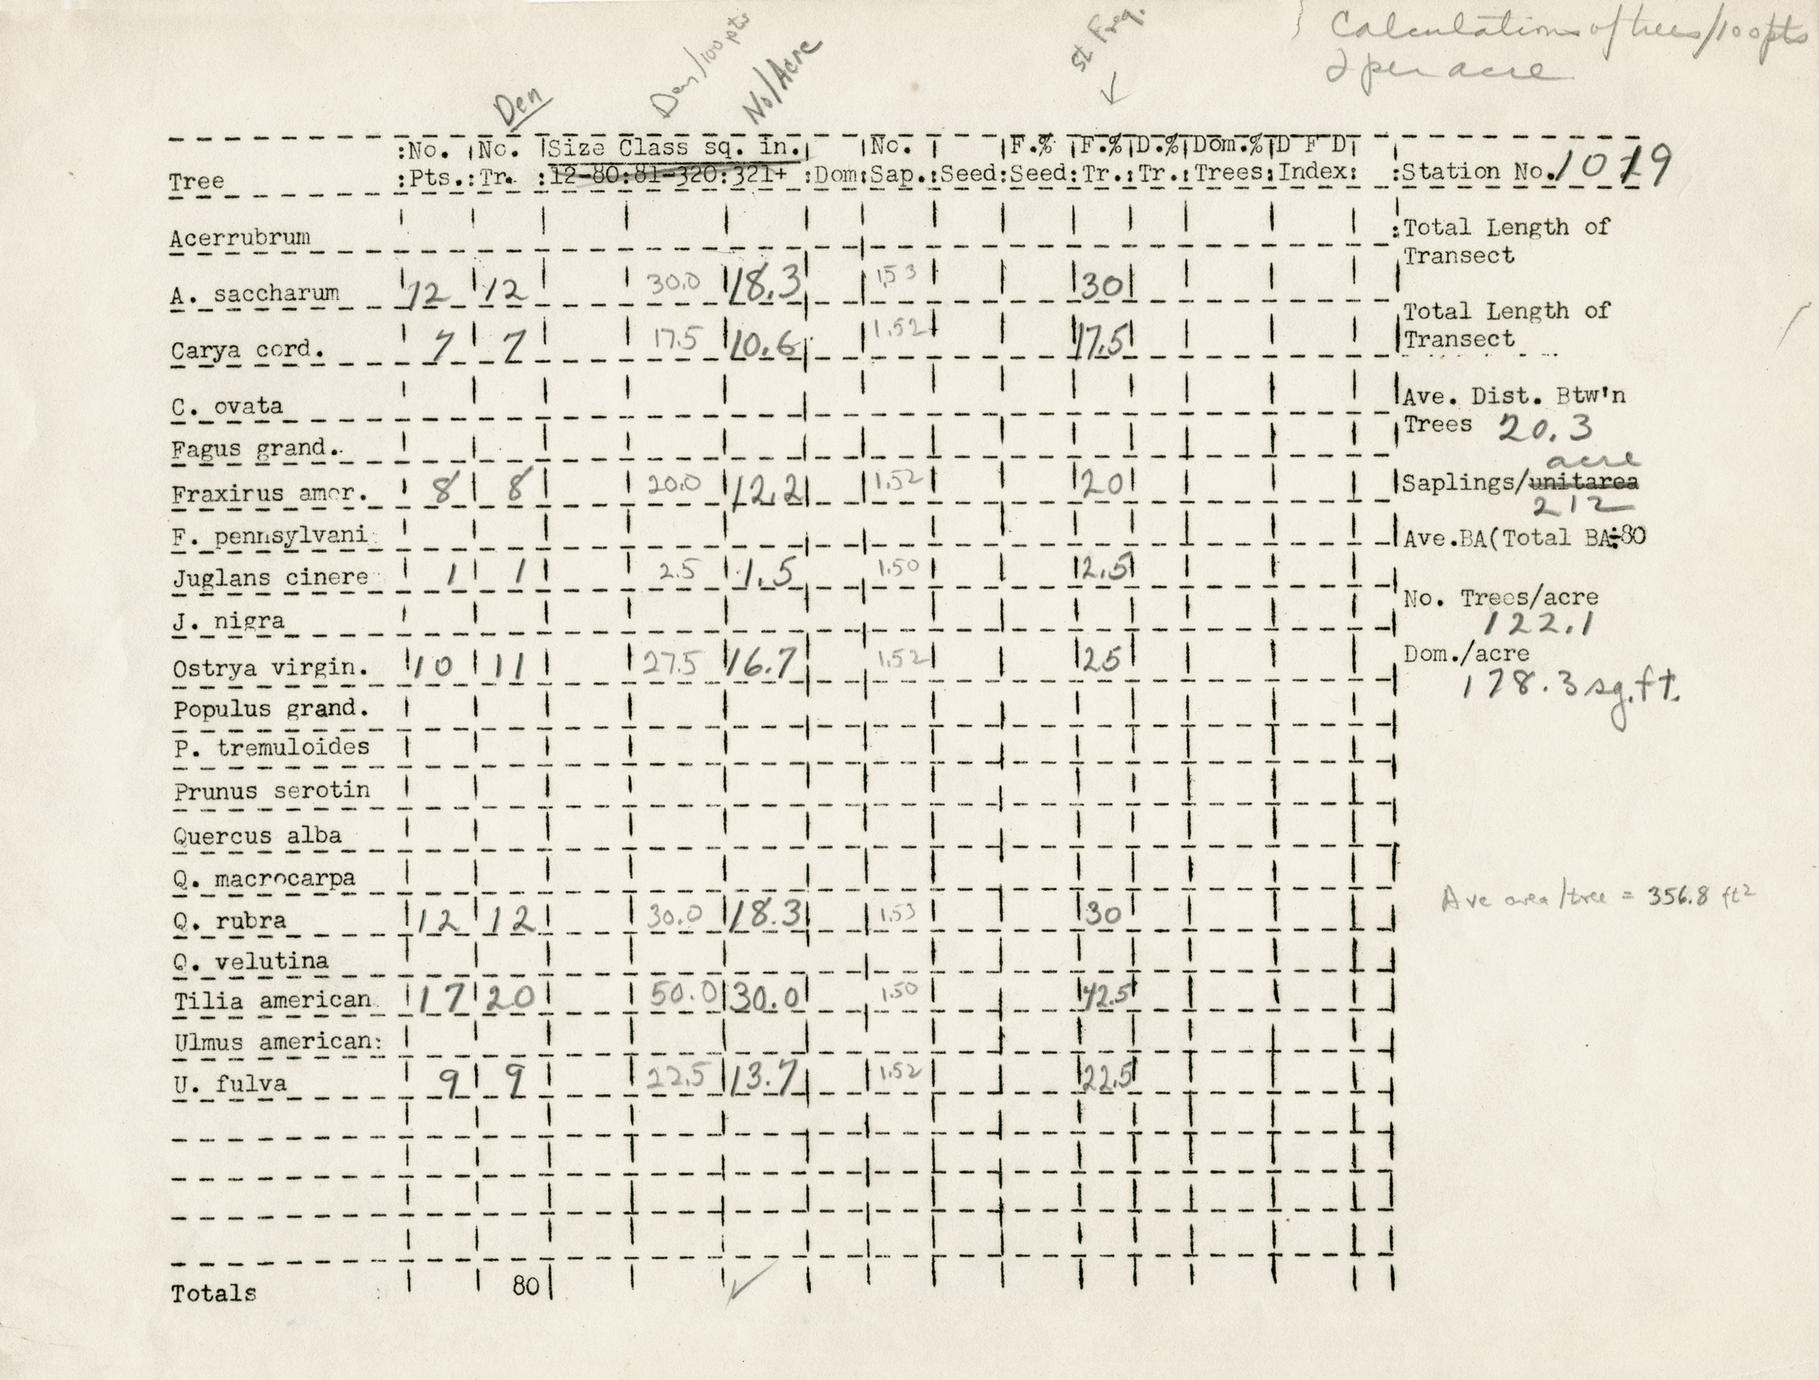 Calculations of trees/100pts
& per acre
Den
Den/100 pts
No/Acre
st Freq.
:No. |No. |Size Class sq. in.| |No. | |F.% |F.%|D.%|Dom.%|D F D|
Tree :Pts.:Tr. :12-80:81-320:321+ :Dom:Sap.:Seed:Seed:Tr.:Tr.:Trees:Index: :Station No. 1019
Acerrubrum :Total Length of
Transect
A. saccharum 12 12 30.0 18.3 1.53 30
Total Length of
Carya cord. 7 7 17.5 10.6 1.52 17.5 Transect
C. ovata Ave. Dist. Btw'n
Trees 20.3
Fagus grand.
acre
Fraxirus amer. 8 8 20.0 12.2 1.52 20 Saplings/unitarea
212
F. pennsylvani Ave.BA(Total BA÷80
Juglans cinere 1 1 2.5 1.5 1.50 2.5
No. Trees/acre
J. nigra 122.1
Ostrya virgin. 10 11 27.5 16.7 1.52 25 Dom./acre
178.3 sq.ft.
Populus grand.
P. tremuloides
Prunus serotin
Quercus alba
Q. macrocarpa
Ave area/tree = 356.8 ft²
Q. rubra 12 12 30.0 18.3 1.53 30
Q. velutina
Tilia american 17 20 50.0 30.0 1.50 42.5
Ulmus american:
U. fulva 9 9 22.5 13.7 1.52 22.5
Totals : 80